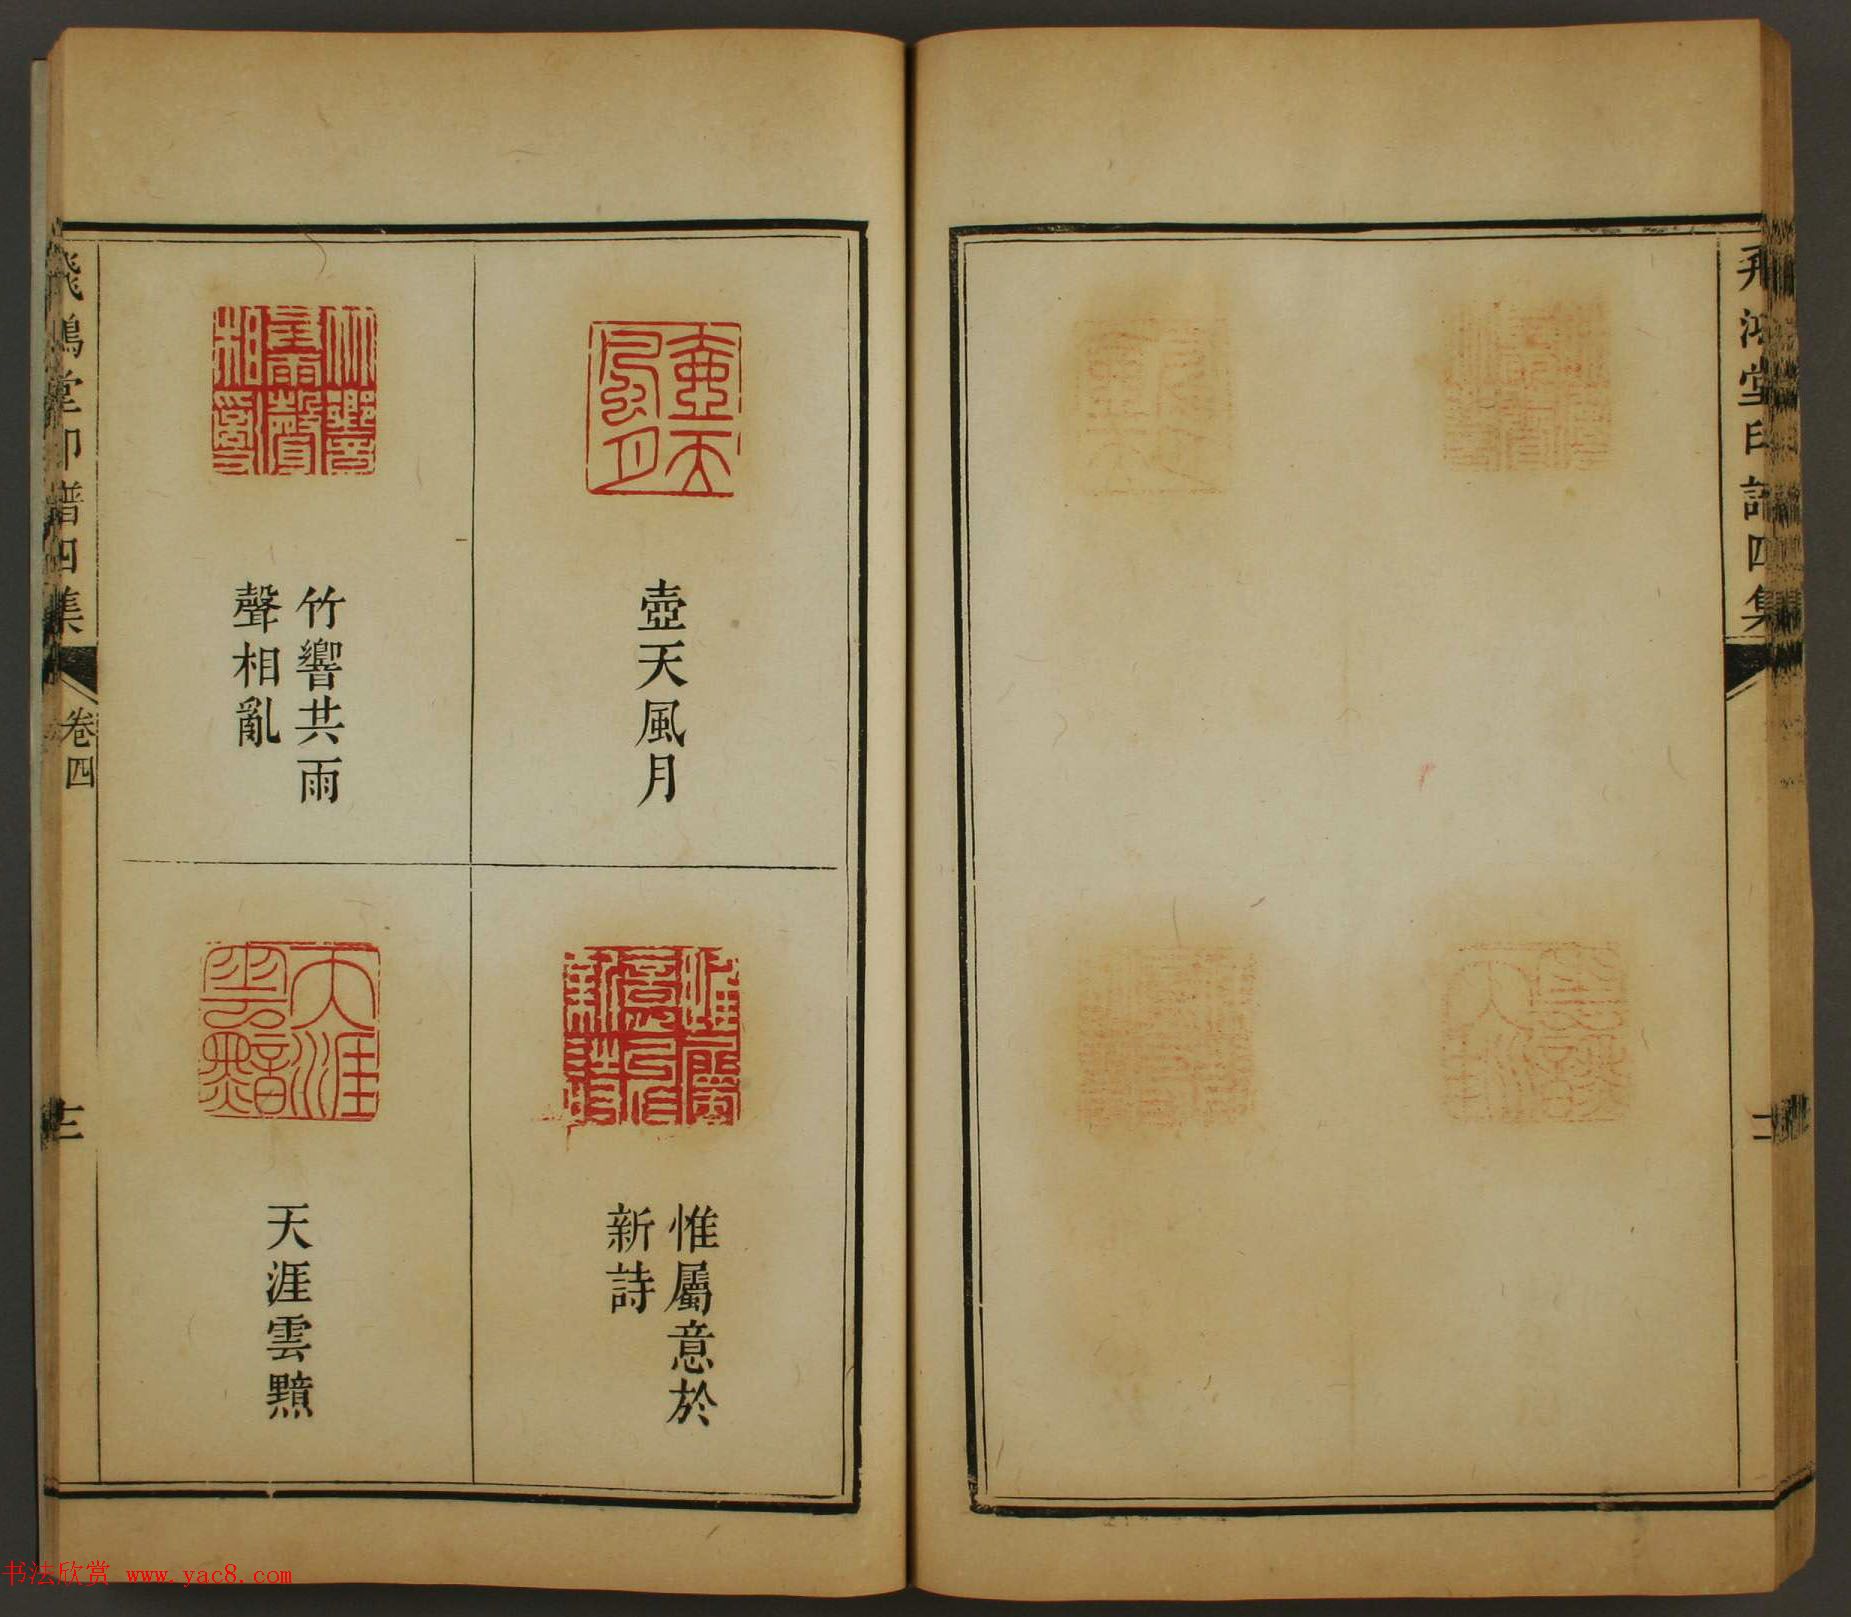 飛鴻堂印譜四集
壺天風月
竹響共雨
聲相亂
惟屬意於
新詩
天涯雲黯
飛鴻堂印譜四集
卷四
十三
书法欣赏 www.yac8.com